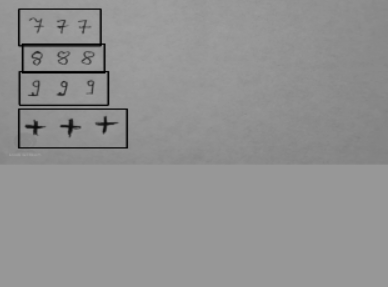 7 7 7
8 8 8
9 9 9
+ + +